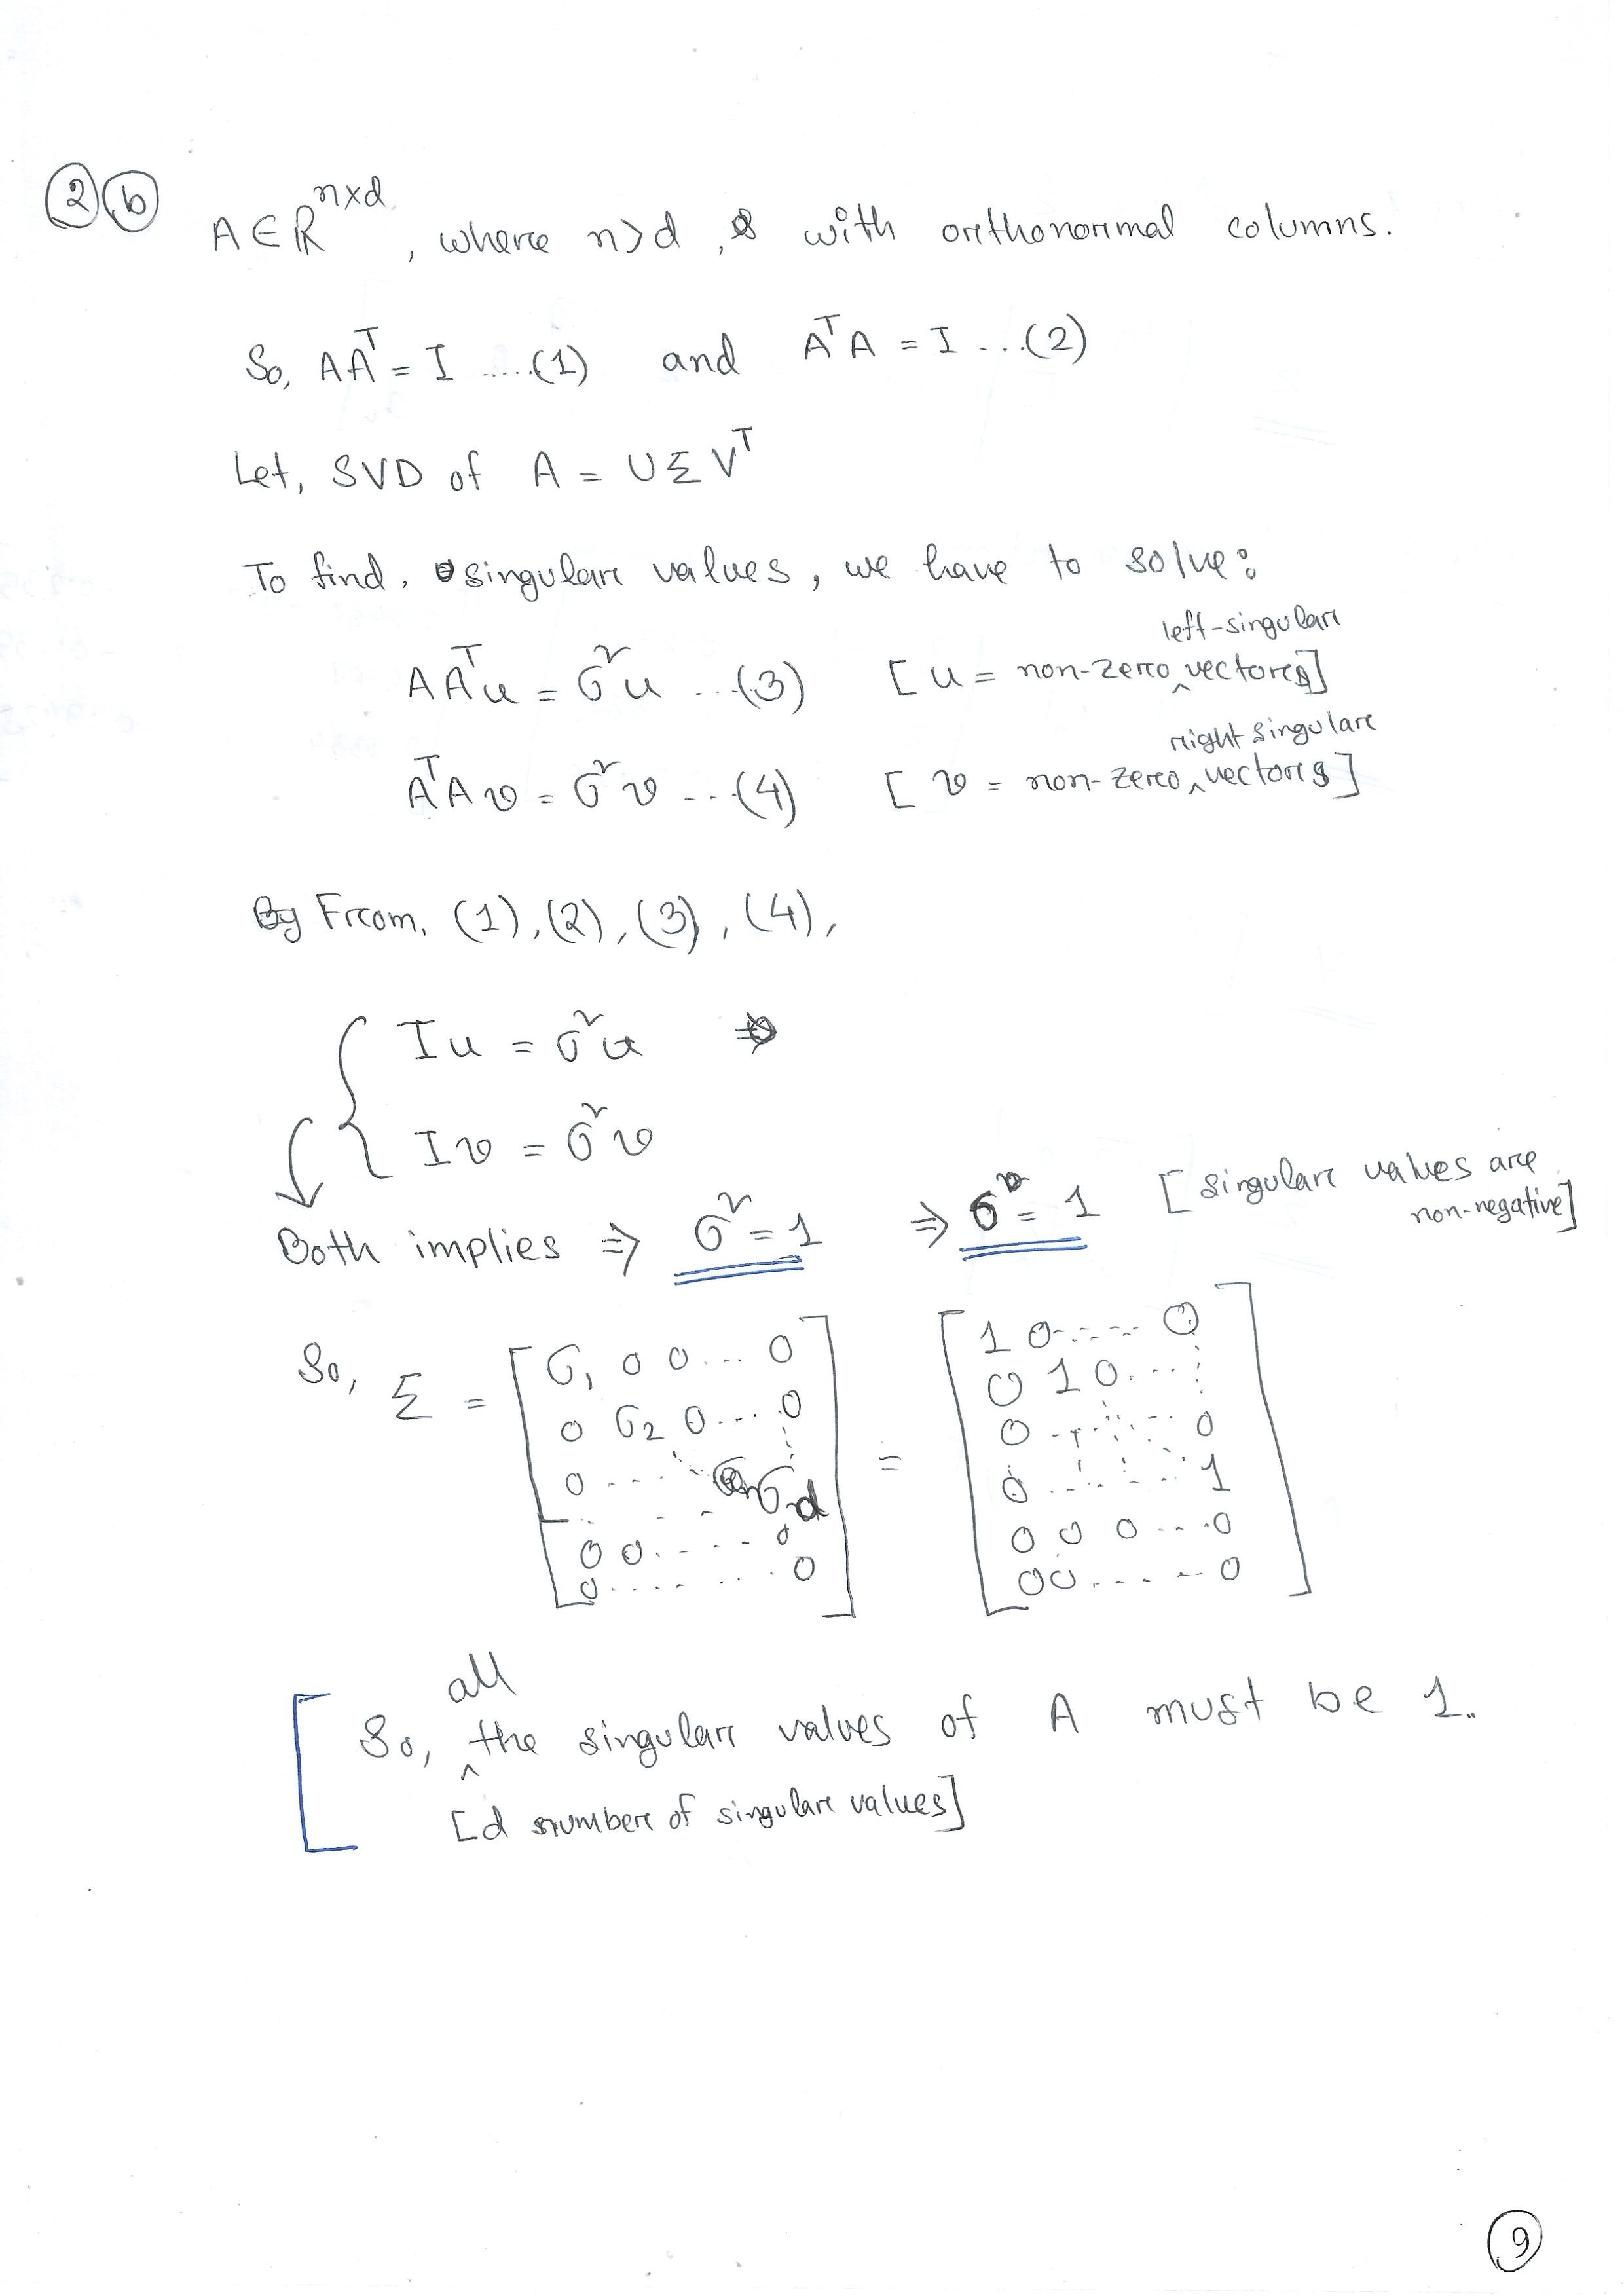 2 b
A ∈ ℝ^{n×d}, where n>d, with orthonormal columns.
So, AA^T = I .....(1) and A^T A = I ...(2)
Let, SVD of A = U Σ V^T
To find, singular values, we have to solve:
AA^T u = σ² u ...(3) [u = non-zero left-singular vectors]
A^T A v = σ² v ...(4) [v = non-zero right singular vectors]
From, (1), (2), (3), (4),
Iu = σ² u
Iv = σ² v
Both implies ⇒ σ² = 1 ⇒ σ = 1 [singular values are non-negative]
So, Σ = [σ₁ 0 0 ... 0 = [1 0 ---- 0
0 σ₂ 0 ... 0 0 1 0 ...
0 ... σ_d 0 ... 0
0 ... 1
0 0 ... 0 0 0 0 ... 0
0 ... 0] 0 0 ... 0]
So, all the singular values of A must be 1.
[d number of singular values]
9